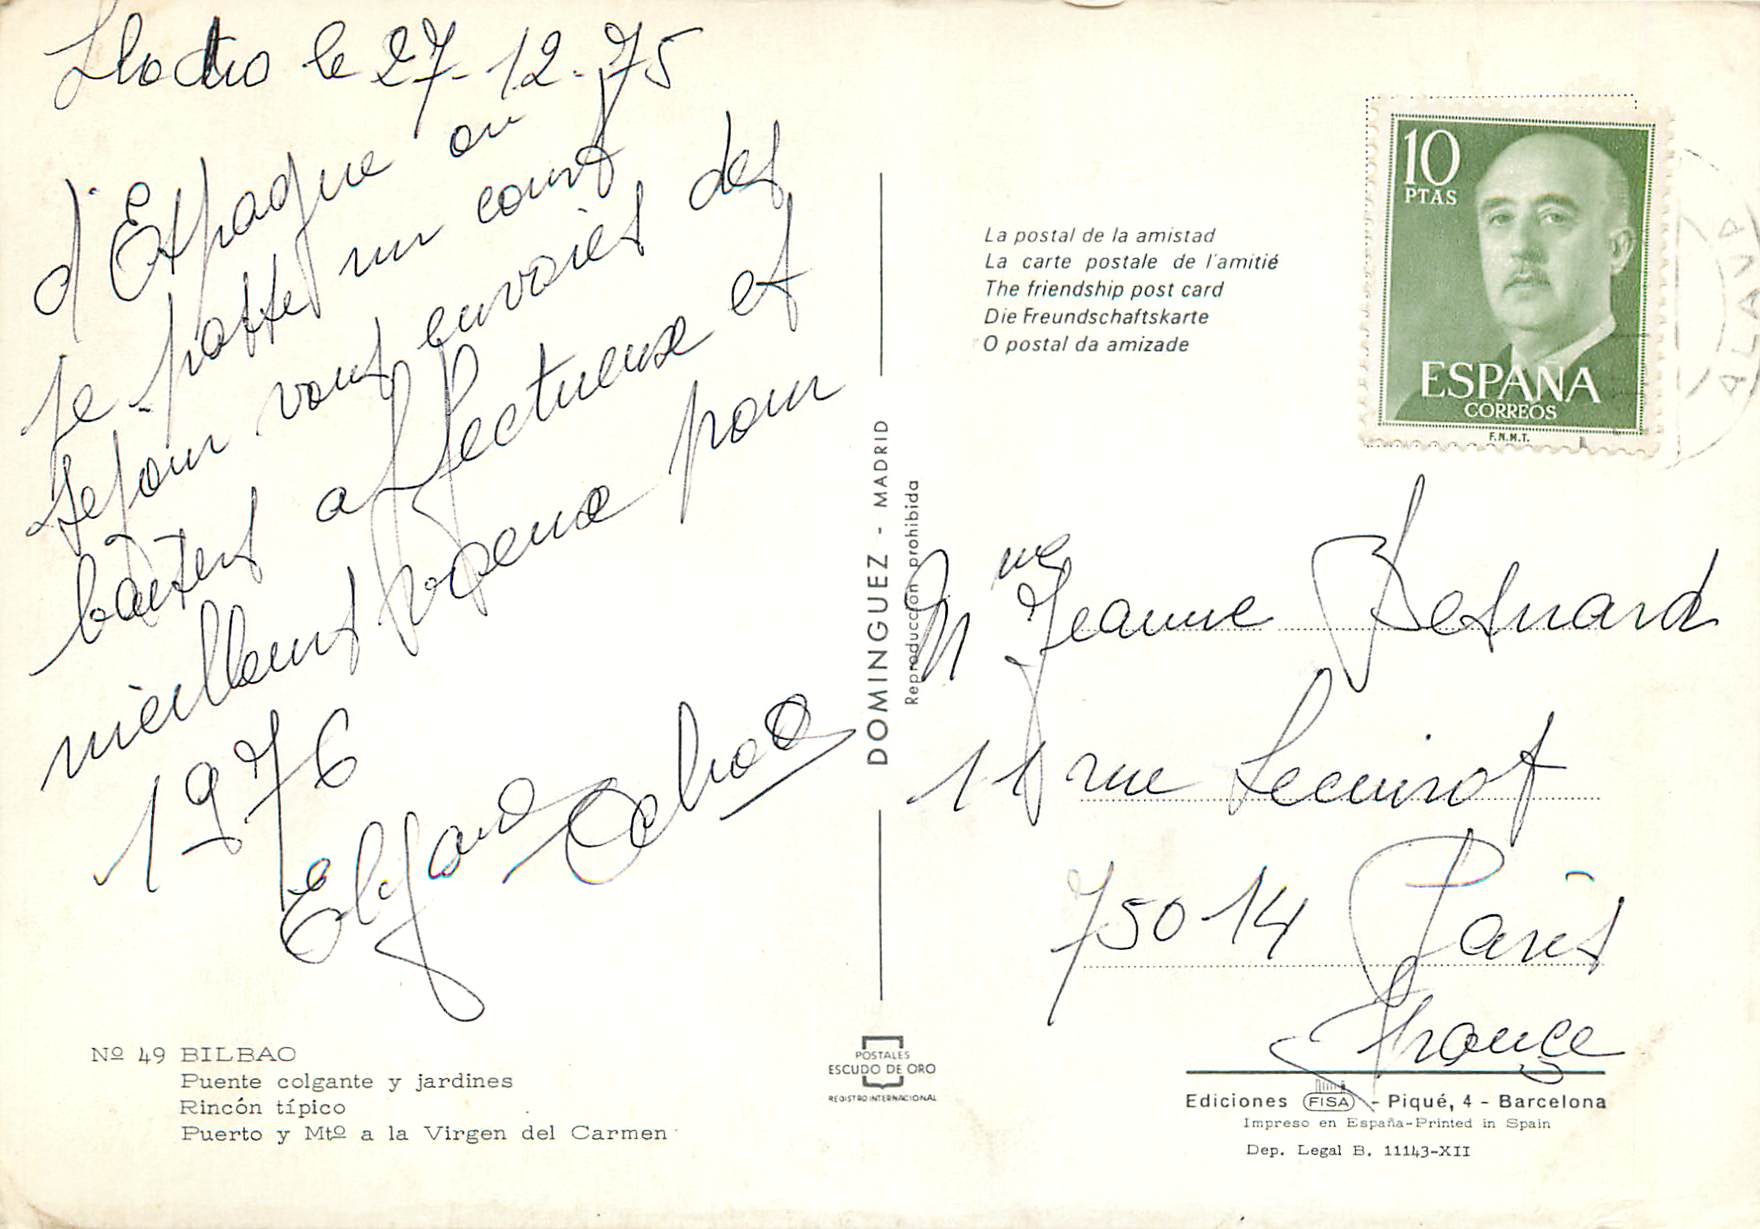 Llodio le 27-12-75
d'Espagne ou
je passe un court
séjour vous envoies des
baisers affectueux et
meilleurs voeux pour
1976
Edgard Ochoa
Nº 49 BILBAO
Puente colgante y jardines
Rincón típico
Puerto y Mtº a la Virgen del Carmen
DOMINGUEZ - MADRID
Reproducción prohibida
POSTALES
ESCUDO DE ORO
REGISTRO INTERNACIONAL
La postal de la amistad
La carte postale de l'amitié
The friendship post card
Die Freundschaftskarte
O postal da amizade
10
PTAS
ESPAÑA
CORREOS
F.N.M.T.
ALAVA
Mme Jeanne Besnard
11 rue Lecuirot
75014 Paris
France
Ediciones FISA - Piqué, 4 - Barcelona
Impreso en España-Printed in Spain
Dep. Legal B. 11143-XII